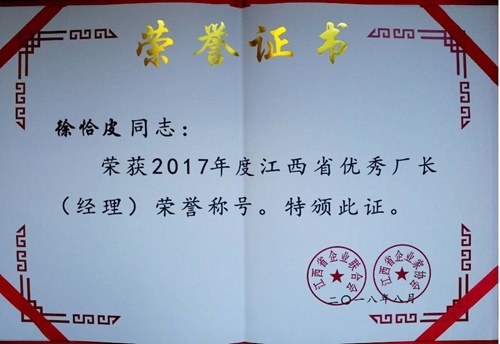 荣誉证书
徐恰皮同志：
荣获2017年度江西省优秀厂长
（经理）荣誉称号。特颁此证。
江西省企业联合会
江西省企业家协会
二〇一八年八月